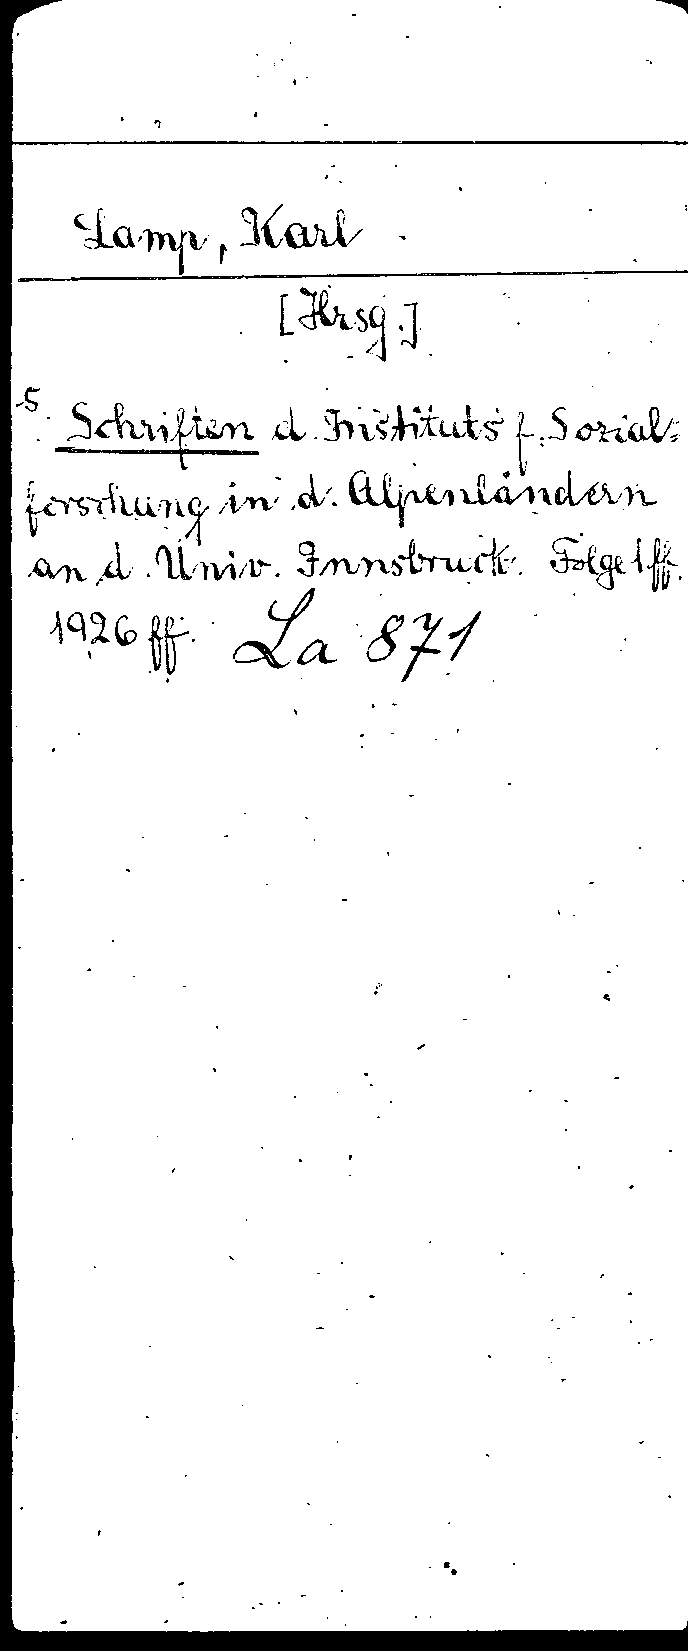 Lamp, Karl
[Hrsg.]
s. Schriften d. Instituts f. Sozial=
forschung in d. Alpenländern
an d. Univ. Innsbruck. Folge 1 ff.
1926 ff. La 871